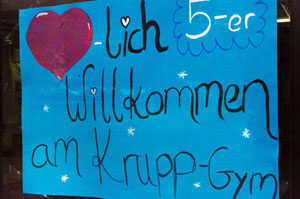 -lich 5-er
Willkommen
am Krupp-Gym